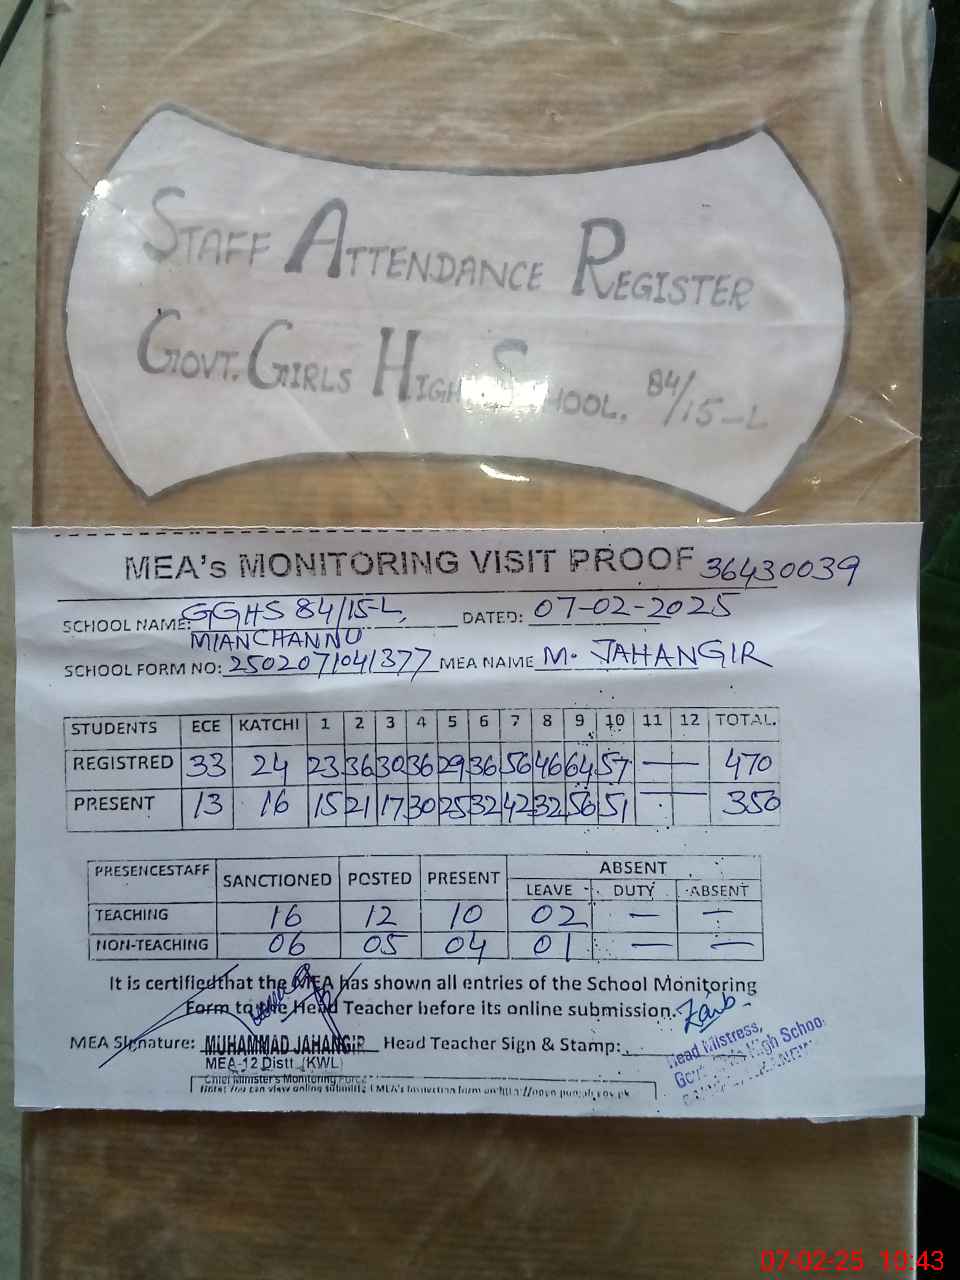 STAFF ATTENDANCE REGISTER
GOVT. GIRLS HIGH SCHOOL. 84/15-L
MEA's MONITORING VISIT PROOF 36430039
SCHOOL NAME: GGHS 84/15-L, DATED: 07-02-2025
MIANCHANNU
SCHOOL FORM NO: 250207/041377 MEA NAME M. JAHANGIR
STUDENTS ECE KATCHI 1 2 3 4 5 6 7 8 9 10 11 12 TOTAL.
REGISTRED 33 24 23 36 30 36 29 36 56 46 64 57 — 470
PRESENT 13 16 15 21 17 30 25 32 42 32 56 51 — 350
PRESENCESTAFF SANCTIONED POSTED PRESENT ABSENT
LEAVE DUTY ABSENT
TEACHING 16 12 10 02 — —
NON-TEACHING 06 05 04 01 — —
It is certifiedthat the MEA has shown all entries of the School Monitoring
Form to the Head Teacher before its online submission.
MEA Signature: MUHAMMAD JAHANGIR Head Teacher Sign & Stamp:
MEA-12 Distt (KWL)
Chief Minister's Monitoring Force
Head Mistress,
High School
07-02-25 10:43